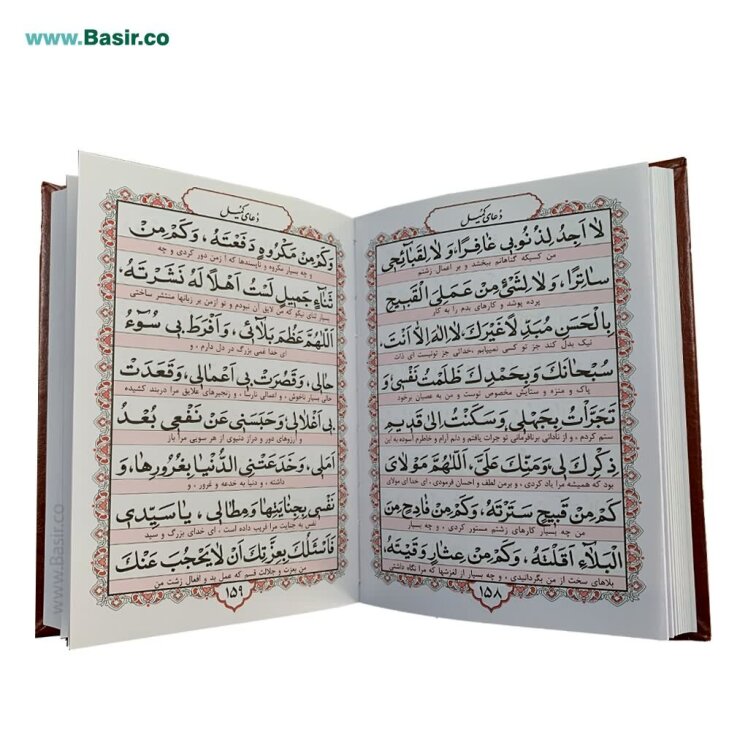 www.Basir.co
دعای کمیل
لا اَجِدُ لِذُنُوبی غافِرًا، وَلا لِقَبآئِحی
من کسیکه گناهانم ببخشد و بر اعمال زشتم
ساتِرًا، وَلا لِشَیْءٍ مِنْ عَمَلِیَ الْقَبیحِ
پرده پوشد و کارهای بدم را به کار
بِالْحَسَنِ مُبَدِّلاً غَیْرَكَ لا اِلهَ اِلاّ اَنْتَ،
نیک بدل کند جز تو کسی نمییابم خدائی جز تونیست ای ذات
سُبْحانَكَ وَ بِحَمْدِكَ ظَلَمْتُ نَفْسی وَ
پاک و منزه و ستایش مخصوص توست و من به عصیان برخود
تَجَرَّأْتُ بِجَهْلی، وَسَکَنْتُ اِلی قَدیمِ
ستم کردم ، و از نادانی برنافرمانی تو جرات یافتم و دلم آرام و خاطرم آسوده به این
ذِکْرِكَ لی، وَمَنِّكَ عَلَیَّ، اَللّهُمَّ مَوْلایَ
بود که همیشه مرا یاد کردی ، و برمن لطف و احسان فرمودی ، ای خدا ای مولای
کَمْ مِنْ قَبیحٍ سَتَرْتَهُ، وَکَمْ مِنْ فادِحٍ مِنَ
من چه بسیار کارهای زشتم مستور کردی ، و چه بسیار
الْبَلآءِ اَقَلْتَهُ، وَکَمْ مِنْ عِثارٍ وَقَیْتَهُ،
بلاهای سخت از من بگردانیدی ، و چه بسیار از لغزشها که مرا نگاه داشتی
١٥٨
دعای کمیل
وَکَمْ مِنْ مَکْرُوهٍ دَفَعْتَهُ، وَکَمْ مِنْ
و چه بسیار مکروه و ناپسندها که از من دور کردی و چه
ثَنآءٍ جَمیلٍ لَسْتُ اَهْلاً لَهُ نَشَرْتَهُ،
بسیار ثنای نیکو که من لایق آن نبودم و تو ازمن بر زبانها منتشر ساختی
اَللّهُمَّ عَظُمَ بَلآئی، وَاَفْرَطَ بی سُوءُ
ای خدا غمی بزرگ در دل دارم ، و
حالی، وَقَصُرَتْ بی اَعْمالی، وَقَعَدَتْ
حالی بسیار ناخوش ، و اعمالی نارسا ، و زنجیرهای علایق مرا دربند کشیده
بی اَغْلالی، وَحَبَسَنی عَنْ نَفْعی بُعْدُ
و آرزوهای دور و دراز دنیوی از هر سویی مرا باز
اَمَلی، وَخَدَعَتْنِی الدُّنْیا بِغُرُورِها، وَ
داشته ، و دنیا به خدعه و غرور ، و
نَفْسی بِجِنایَتِها وَمِطالی، یا سَیِّدی
نفس به جنایت مرا فریب داده است ، ای خدای بزرگ و سید
فَاَسْئَلُكَ بِعِزَّتِكَ اَنْ لا یَحْجُبَ عَنْكَ
من بعزت و جلالت قسم که عمل بد و افعال زشت من
١٥٩
www.Basir.co